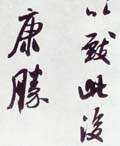 以致此後
康勝